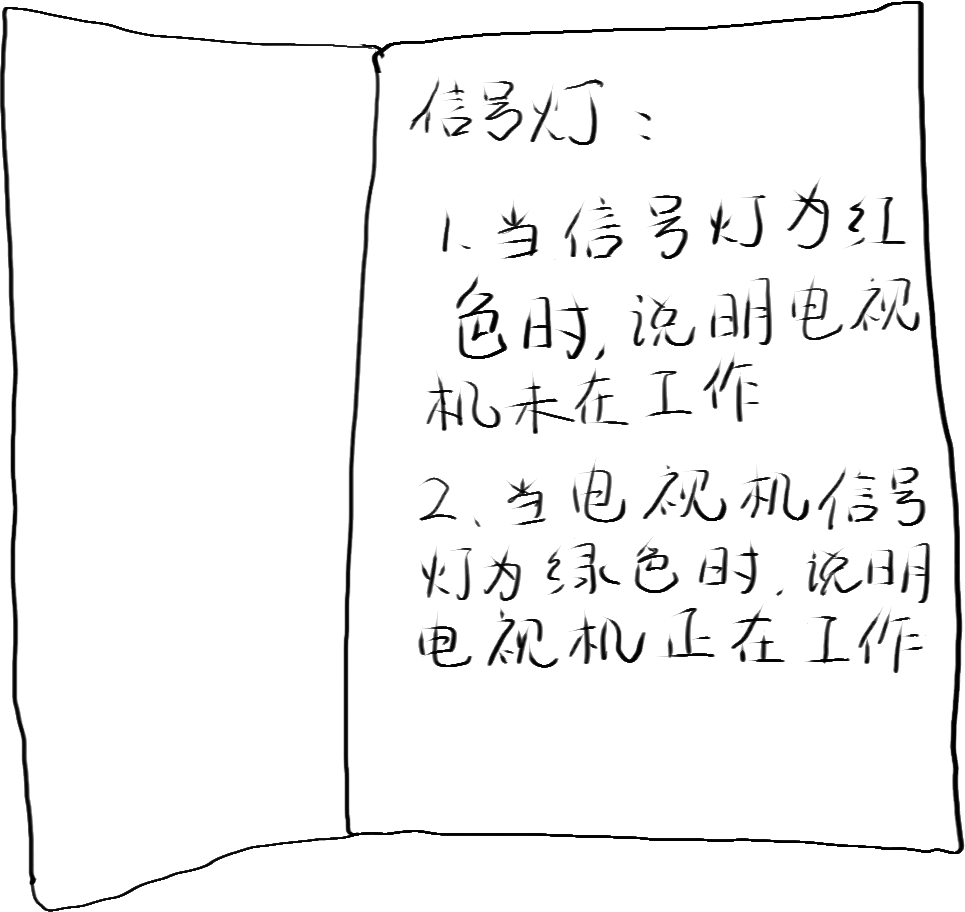 信号灯：
1、当信号灯为红
色时,说明电视
机未在工作
2、当电视机信号
灯为绿色时,说明
电视机正在工作